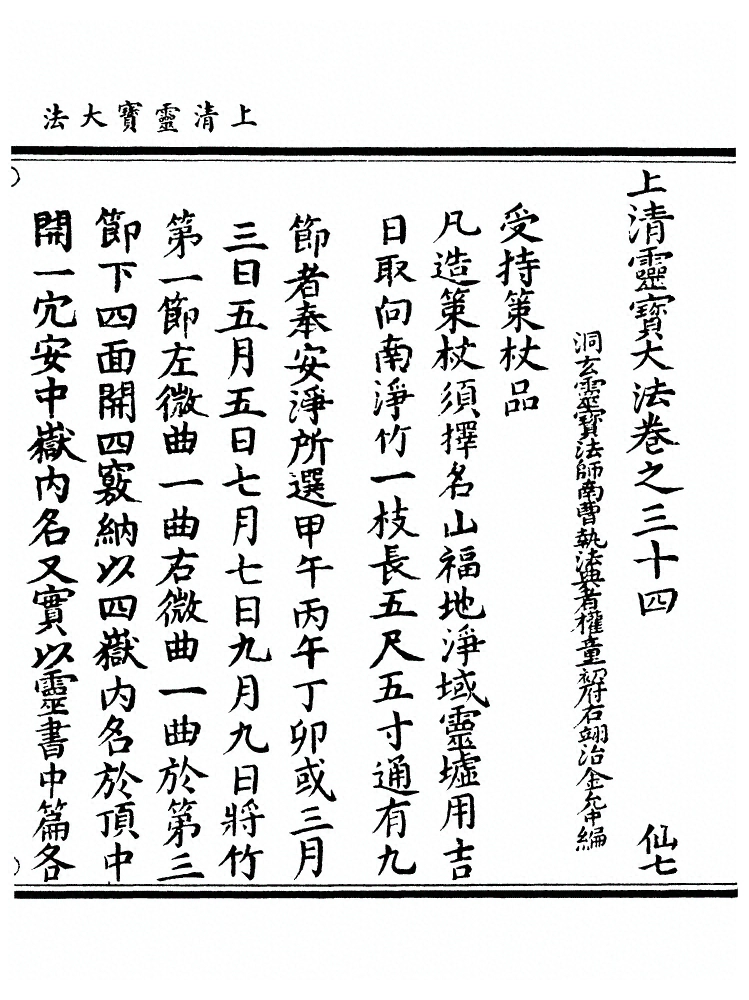 上清靈寶大法
上清靈寶大法卷之三十四 仙七
洞玄靈寶法師南曹執法典者權童初府右翊治金允中編
受持策杖品
凡造策杖須擇名山福地淨域靈墟用吉
日取向南淨竹一枝長五尺五寸通有九
節者奉安淨所選甲午丙午丁卯或三月
三日五月五日七月七日九月九日將竹
第一節左微曲一曲右微曲一曲於第三
節下四面開四竅納以四嶽內名於頂中
開一穴安中嶽內名又實以靈書中篇各